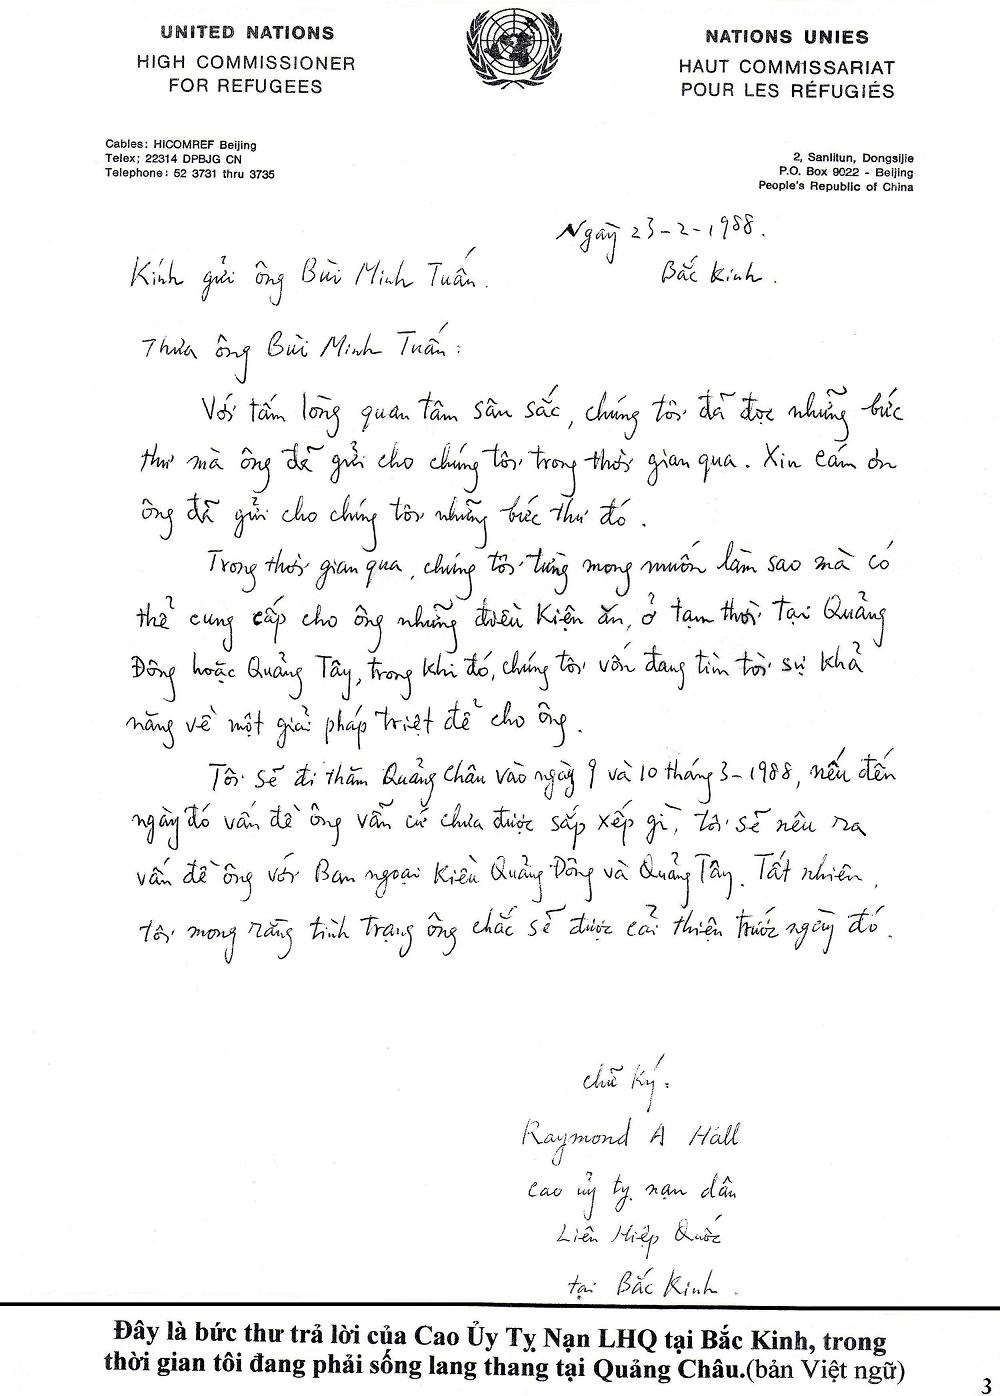 UNITED NATIONS
HIGH COMMISSIONER
FOR REFUGEES
NATIONS UNIES
HAUT COMMISSARIAT
POUR LES RÉFUGIÉS
Cables: HICOMREF Beijing
Telex; 22314 DPBJG CN
Telephone: 52 3731 thru 3735
2, Sanlitun, Dongsijie
P.O. Box 9022 - Beijing
People's Republic of China
Ngày 23-2-1988.
Bắc Kinh.
Kính gửi ông Bùi Minh Tuấn.
Thưa ông Bùi Minh Tuấn:
Với tấm lòng quan tâm sân sắc, chúng tôi đã đọc những bức
thư mà ông đã gửi cho chúng tôi trong thời gian qua. Xin cám ơn
ông đã gửi cho chúng tôi những bức thư đó.
Trong thời gian qua, chúng tôi từng mong muốn làm sao mà có
thể cung cấp cho ông những điều kiện ăn, ở tạm thời tại Quảng
Đông hoặc Quảng Tây, trong khi đó, chúng tôi vốn đang tìm tòi sự khả
năng về một giải pháp triệt để cho ông.
Tôi sẽ đi thăm Quảng Châu vào ngày 9 và 10 tháng 3-1988, nếu đến
ngày đó vấn đề ông vẫn cứ chưa được sắp xếp gì, tôi sẽ nêu ra
vấn đề ông với Ban ngoại Kiều Quảng Đông và Quảng Tây. Tất nhiên,
tôi mong rằng tình trạng ông chắc sẽ được cải thiện trước ngày đó.
chữ ký:
Raymond A Hall
cao ủy tỵ nạn dân
Liên Hiệp Quốc
tại Bắc Kinh.
Đây là bức thư trả lời của Cao Ủy Tỵ Nạn LHQ tại Bắc Kinh, trong
thời gian tôi đang phải sống lang thang tại Quảng Châu.(bản Việt ngữ)
3